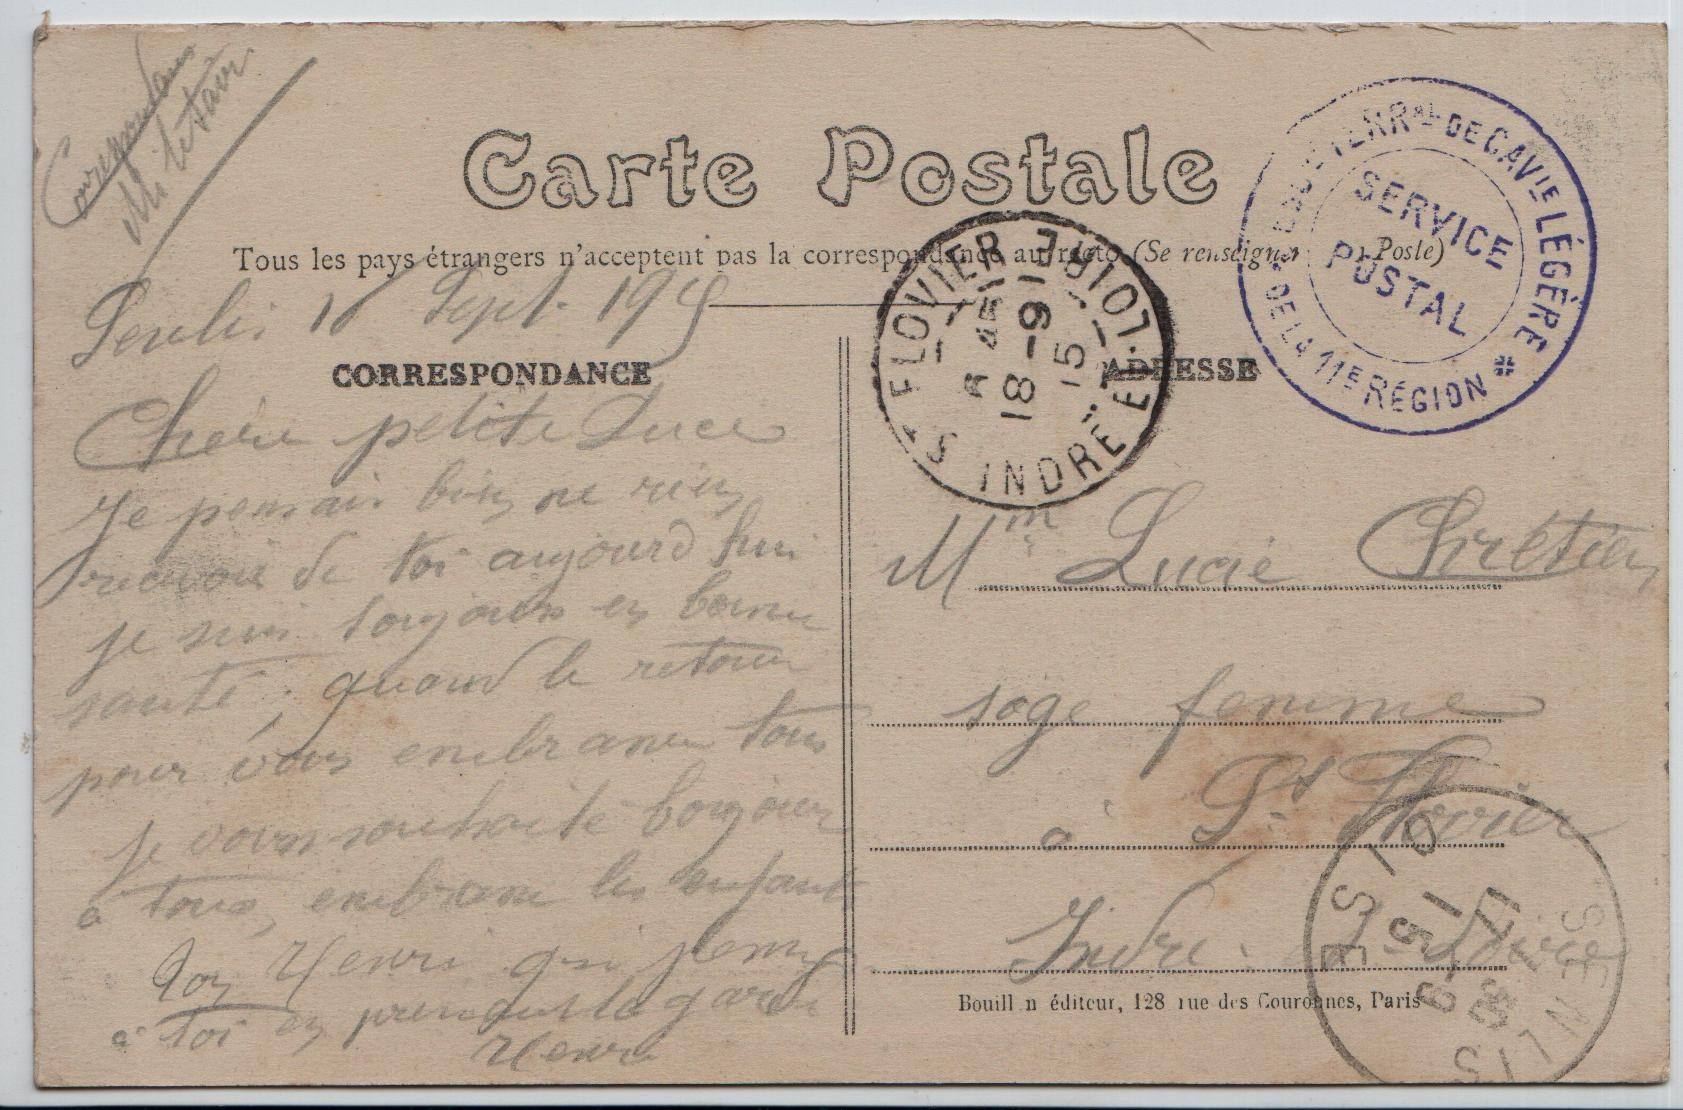 Correspondance
Militaire
Carte Postale
Tous les pays étrangers n'acceptent pas la correspondance au recto (Se renseigner Poste)
Senlis 16 Sept. 1915
CORRESPONDANCE
Chère petite Luce
Je pensais bien ne rien
recevoir de toi aujourd hui
je suis toujours en bonne
santé, quand le retour
pour vous embrasser tous
je vous souhaite bonjour
à tous, embrasse les enfants
Ton Henri qui pense
à toi en prenant la garde
Henri
ADRESSE
Mme Lucie Chrétien
sage femme
à St Flovier
Indre et Loire
Bouill n éditeur, 128 rue des Couronnes, Paris
TERRAL DE CAVIE LÉGÈRE
DE LA 11E RÉGION
SERVICE
POSTAL
ST FLOVIER
18 - 9
15
INDRE-ET-LOIRE
SENLIS
OISE
17 - 9
15